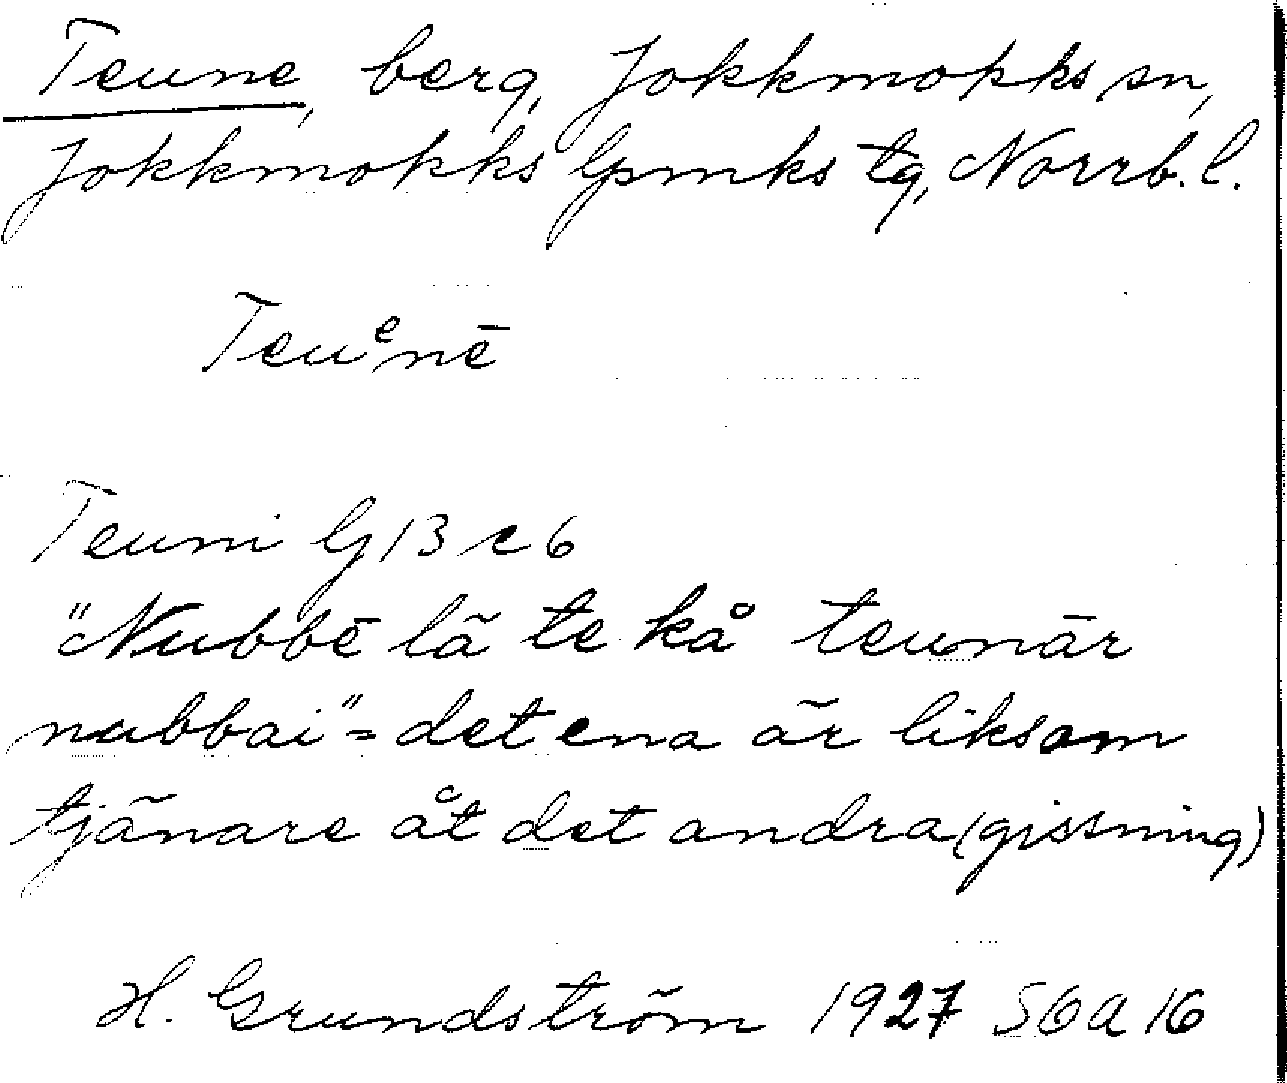 Teune, berg, Jokkmokks sn,
Jokkmokks lpmks tg, Norrb. l.
Teuᵉnē
Teuni G 13 c 6
"Nubbē lä te kå teunār
nubbai" = det ena är liksom
tjänare åt det andra (gissning)
H. Grundström 1927 SGA 16